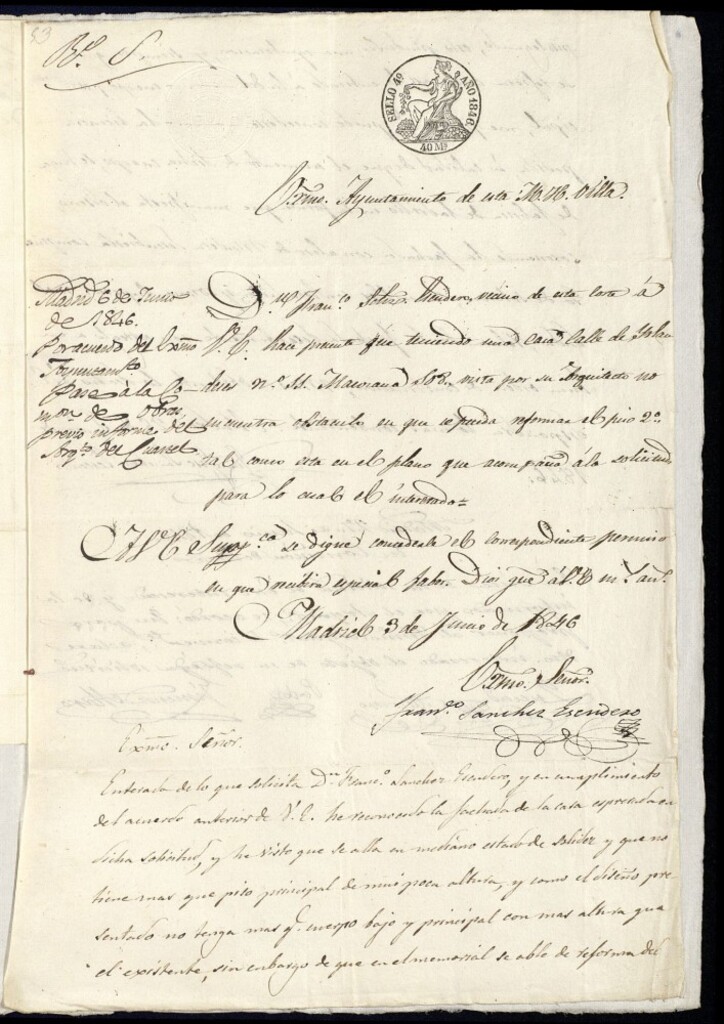 33
SELLO 4º AÑO 1846.
40 Ms
Exmo. Ayuntamiento de esta M. H. Villa.
Madrid 6 de Junio
de 1846.
Por acuerdo del Exmo
Ayuntamto
Pase à la Co-
mon. de Obras,
previo informe del
Arqto. del Cuartel
Dn. Franco. Schez. Escudero, vecino de esta corte á
V. E. hace presente que teniendo una Casa Calle de
nº Manzana 508, vista por su Arquitecto no
encuentra obstaculo en que se pueda reformar el piso 2º
tal como esta en el plano que acompaña á la solicitud
para lo cual el interesado=
A V. E. Suppca. se digne concederle el correspondiente permiso
en que recibirá especial fabor. Dios gue á V. E. ms. as.
Madrid 3 de Junio de 1846
Exmo. Señor.
Franco. Sanchez Escudero
Exmo. Señor.
Enterado de lo que solicita Dn. Franco. Sanchez Escudero, y en cumplimiento
del acuerdo anterior de V. E. he reconocido la fachada de la casa espresada en
dicha solicitud, y he visto que se alla en mediano estado de solidez y que no
tiene mas que piso principal de mui poca altura, y como el diseño pre-
sentado no tenga mas q. cuerpo bajo y principal con mas altura que
el existente, sin embargo de que en el memorial se able de reforma del